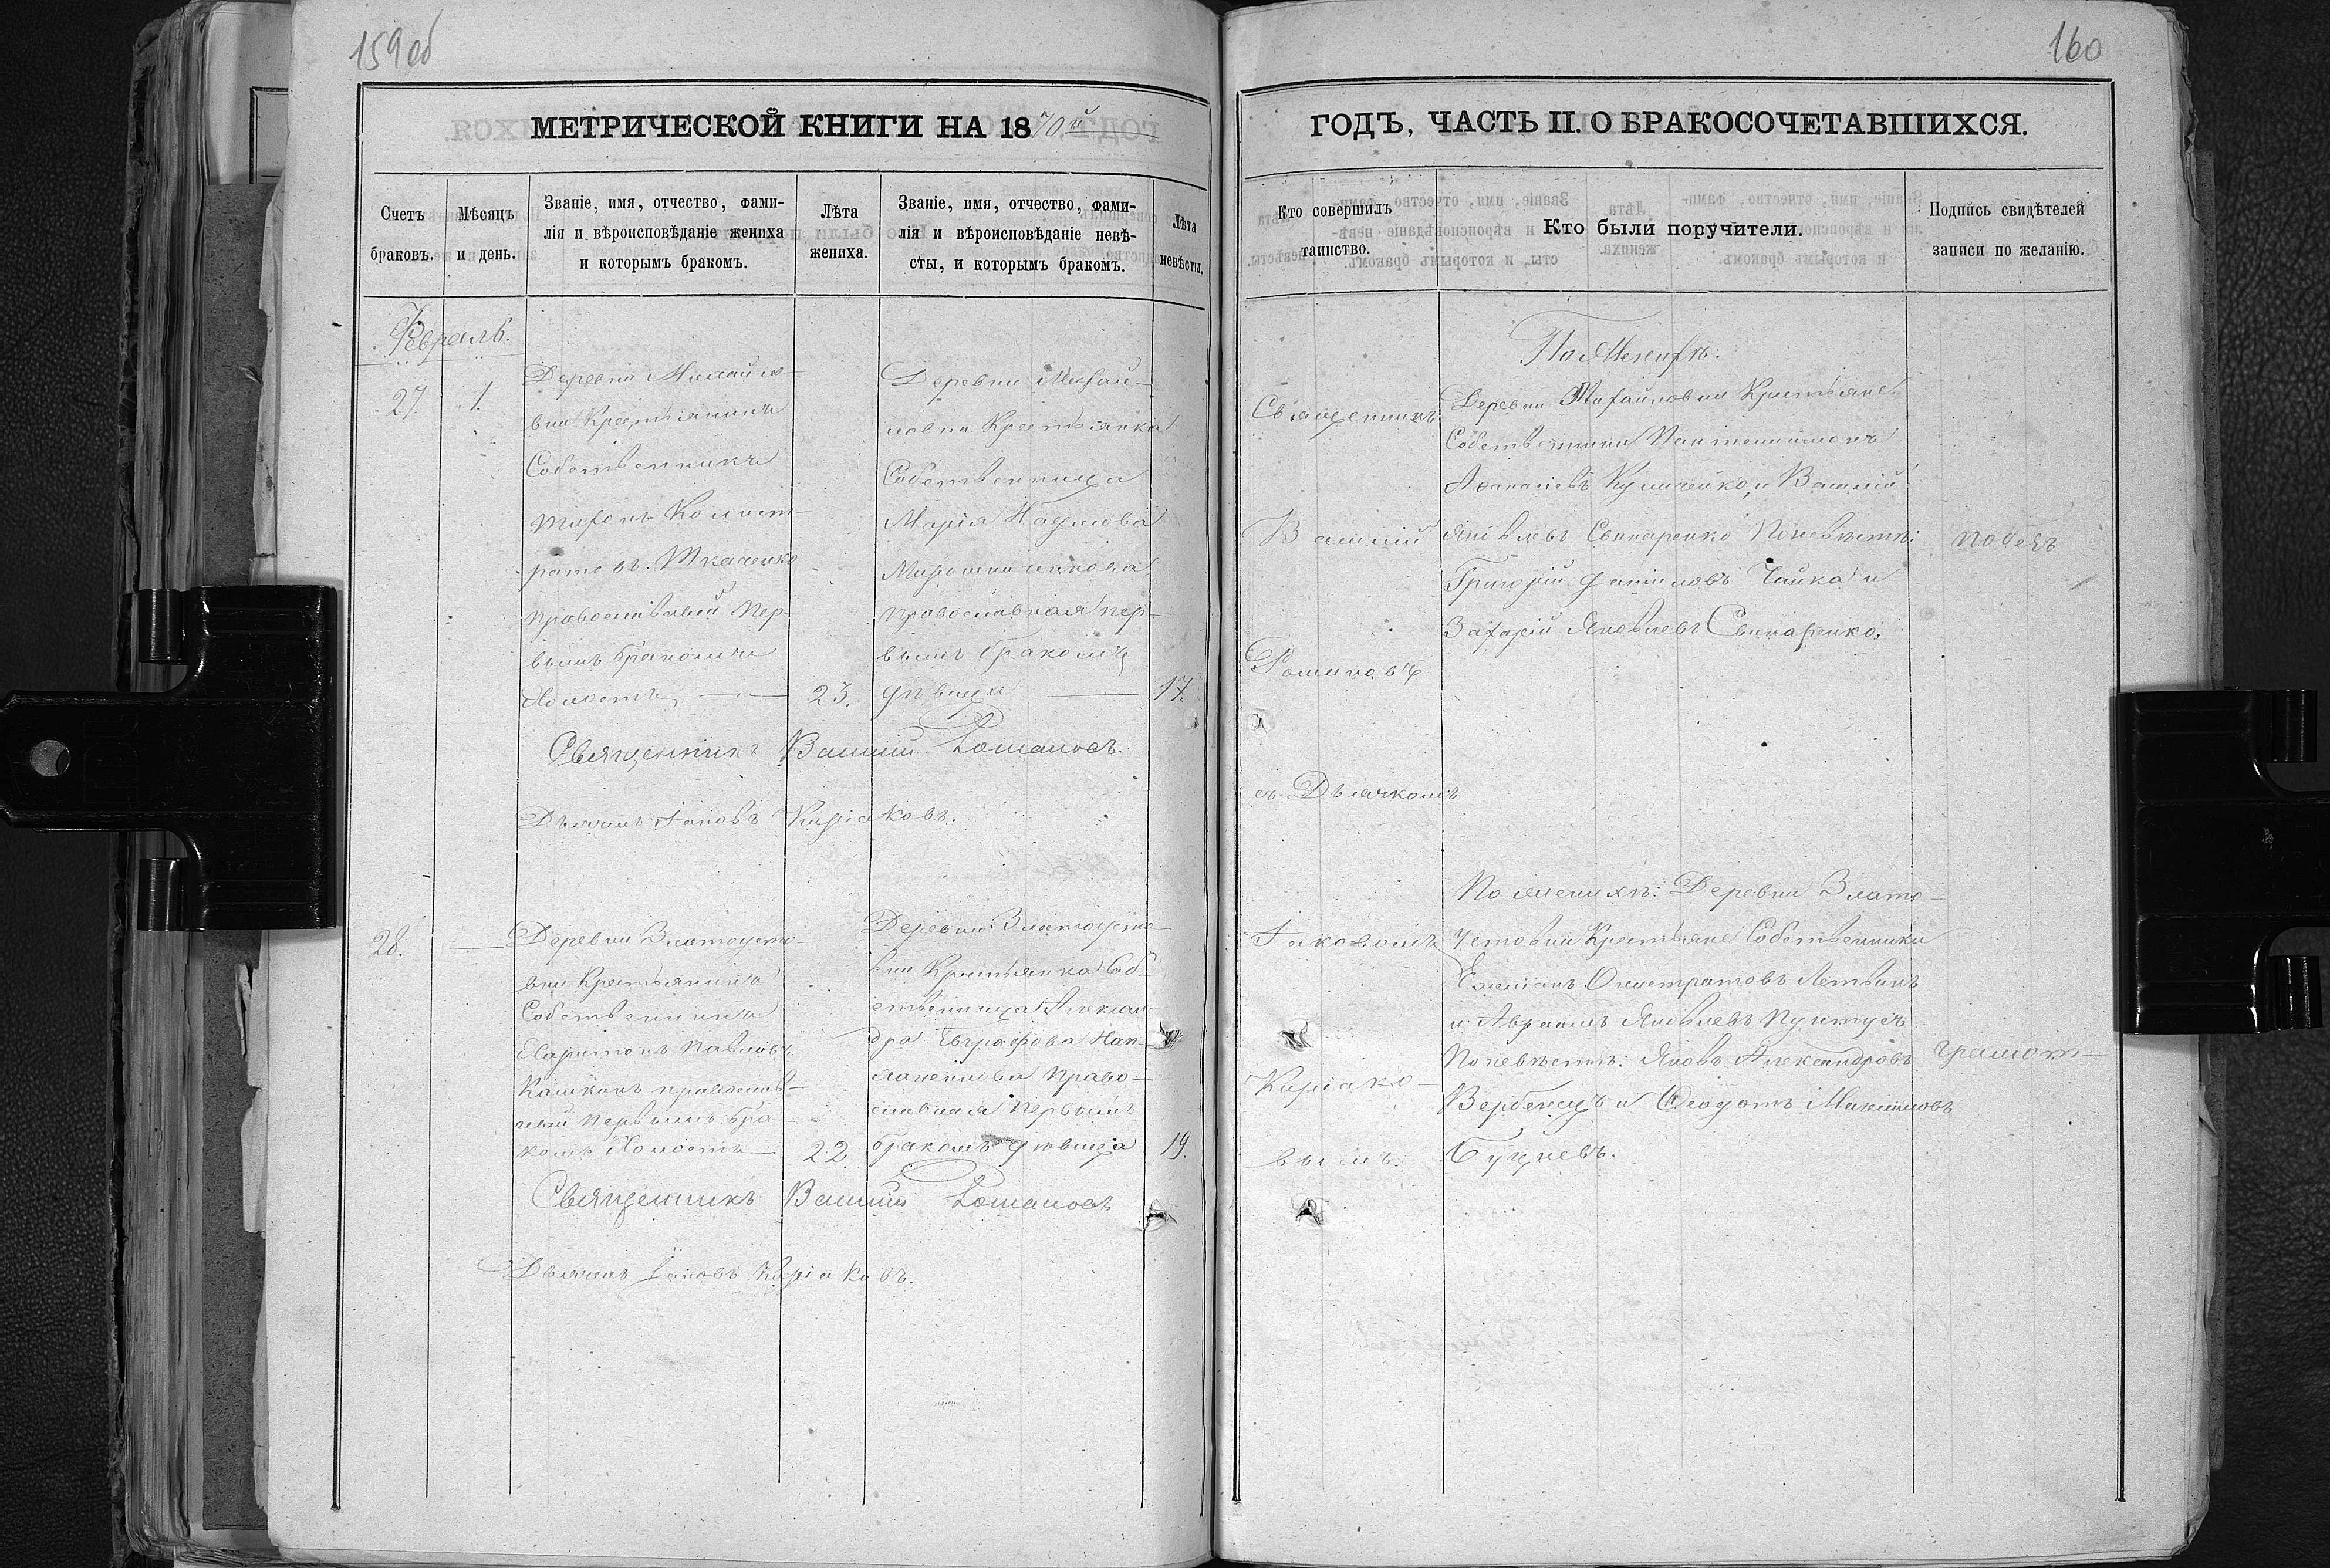 159 об
МЕТРИЧЕСКОЙ КНИГИ НА 1870й
Счетъ браковъ.
Мѣсяцъ и день.
Званіе, имя, отчество, фами-
лія и вѣроисповѣданіе жениха
и которымъ бракомъ.
Лѣта
жениха.
Званіе, имя, отчество, фами-
лія и вѣроисповѣданіе невѣ-
сты, и которымъ бракомъ.
Лѣта
невѣсты.
Февраль.
27. 1.
Деревни Михайло-
вки Крестьянинъ
Собственникъ
Тихонъ
Ткаченко
православный пер-
вымъ бракомъ
Холостъ
23.
Деревни Михай-
ловки Крестьянка
Собственница
Марія Наумова
Мирошниченкова
православная пер-
вымъ бракомъ
дѣвица
17.
Священникъ Василій Романовъ.
Дьячекъ Іаковъ Киріаковъ.
28.
Деревни Златоусто-
вки Крестьянинъ
Собственникъ
Харитонъ Павловъ
Кашкинъ православ-
ный первымъ бра-
комъ Холостъ
22
Деревни Златоусто-
вки Крестьянка Соб-
ственница Алексан-
дра Евграфова
Право-
славная первымъ
бракомъ дѣвица
19.
Священникъ Василій Романовъ
Дьячекъ Іаковъ Киріаковъ.
160
ГОДЪ, ЧАСТЬ II. О БРАКОСОЧЕТАВШИХСЯ.
Кто совершилъ
таинство.
Кто были поручители.
Подпись свидѣтелей
записи по желанію.
Священникъ
Василій
Романовъ
съ Дьячкомъ
Іаковомъ
Киріако-
вымъ.
По Женихѣ:
Деревни Михайловки Крестьяне
Собственники Пантелеимонъ
Аѳанасіевъ Кулиненко, и Василій
Яковлевъ Свинаренко По невѣстѣ:
Григорій Даніиловъ Чайка и
Захарій Яковлевъ Свинаренко.
По женихѣ: Деревни Злато-
устовки Крестьяне Собственники
Летвинъ
и Авраамъ Яковлевъ Пунтусъ
По невѣстѣ: Яковъ Александровъ
Вербенецъ и Ѳеодотъ Максимовъ
Буцневъ.
грамот-